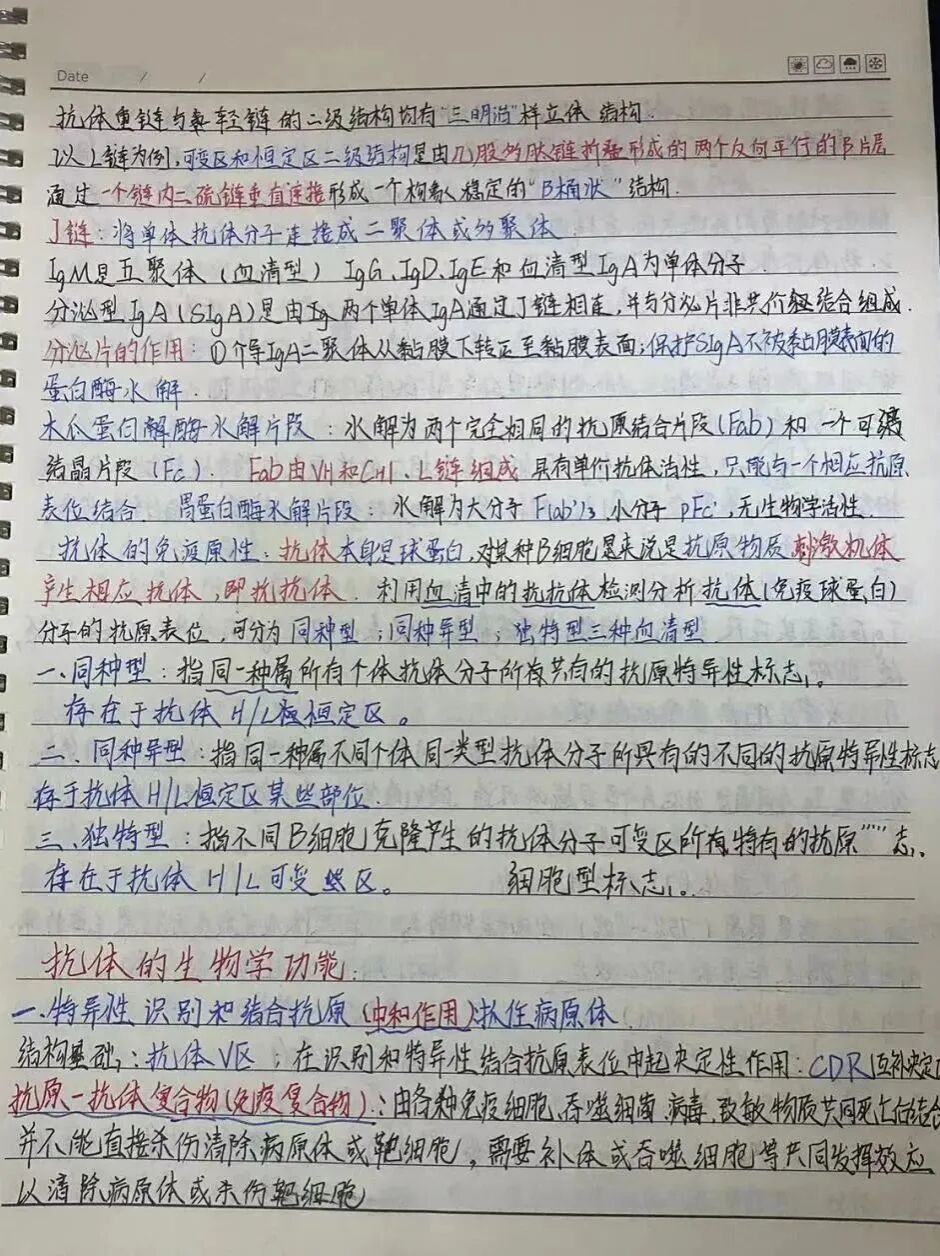 Date / /
抗体重链与轻链的二级结构均有"三明治"样立体结构.
以L链为例,可变区和恒定区二级结构是由几股多肽链折叠形成的两个反向平行的β片层
通过一个链内二硫链垂直连接形成一个构象稳定的"B桶状"结构.
J链:将单体抗体分子连接成二聚体或多聚体
IgM是五聚体(血清型) IgG、IgD、IgE和血清型IgA为单体分子.
分泌型IgA(SIgA)是由Ig两个单体IgA通过J链相连,并与分泌片非共价结合组成.
分泌片的作用:①介导IgA二聚体从黏膜下转运至黏膜表面;保护SIgA不被黏膜表面的
蛋白酶水解.
木瓜蛋白酶水解片段:水解为两个完全相同的抗原结合片段(Fab)和一个可
结晶片段(Fc). Fab由VH和CH1、L链组成 具有单价抗体活性,只能与一个相应抗原
表位结合. 胃蛋白酶水解片段:水解为大分子 小分子pFc',无生物学活性.
抗体的免疫原性:抗体本身是球蛋白,对某种B细胞是来说是抗原物质 刺激机体
产生相应抗体,即抗抗体. 利用血清中的抗抗体检测分析抗体(免疫球蛋白)
分子的抗原表位,可分为同种型;同种异型;独特型三种血清型
一.同种型:指同一种属所有个体抗体分子所有共有的抗原特异性标志.
存在于抗体H/L恒定区。
二.同种异型:指同一种属不同个体同一类型抗体分子所具有的不同的抗原特异性标志
存于抗体H/L恒定区某些部位.
三.独特型:指不同B细胞克隆产生的抗体分子可变区所有特有的抗原""""志.
存在于抗体H/L可变区。 细胞型标志.
抗体的生物学功能:
一.特异性识别和结合抗原(中和作用)抓住病原体
结构基础:抗体V区;在识别和特异性结合抗原表位中起决定性作用:CDR(互补决定
抗原-抗体复合物(免疫复合物):由各种免疫细胞、吞噬细菌、病毒、致敏物质共同
并不能直接杀伤清除病原体或靶细胞,需要补体或吞噬细胞等共同发挥效应
以清除病原体或杀伤靶细胞